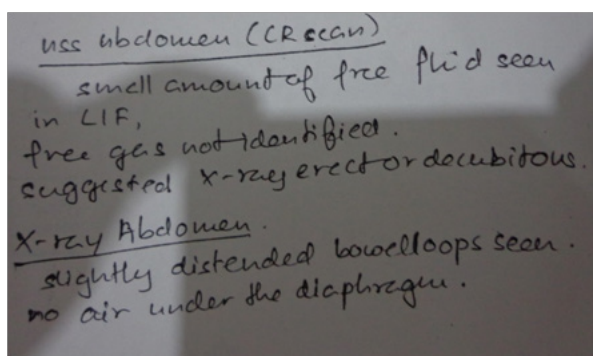 uss abdomen (CR scan)
small amount of free fluid seen
in LIF,
free gas not identified.
suggested X-ray erect or decubitous.
X-ray Abdomen.
slightly distended bowel loops seen.
no air under the diaphragm.